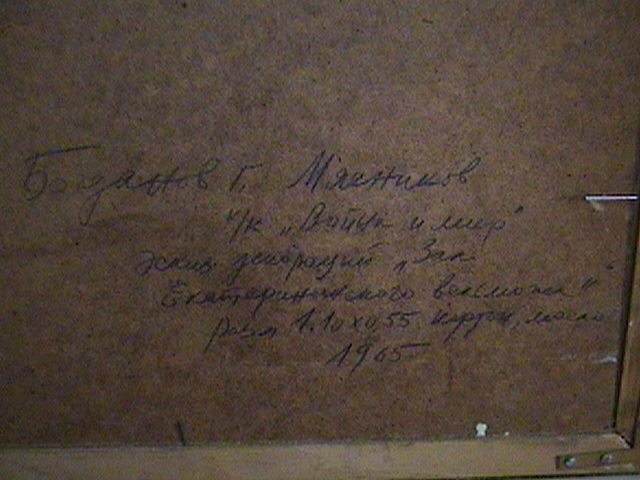 Богданов Г. Мясников
к/к „Война и мир"
Эскиз декораций „Зал
Екатерининского вельможи"
разм 1.10 х 0,55 картон, масло
1965